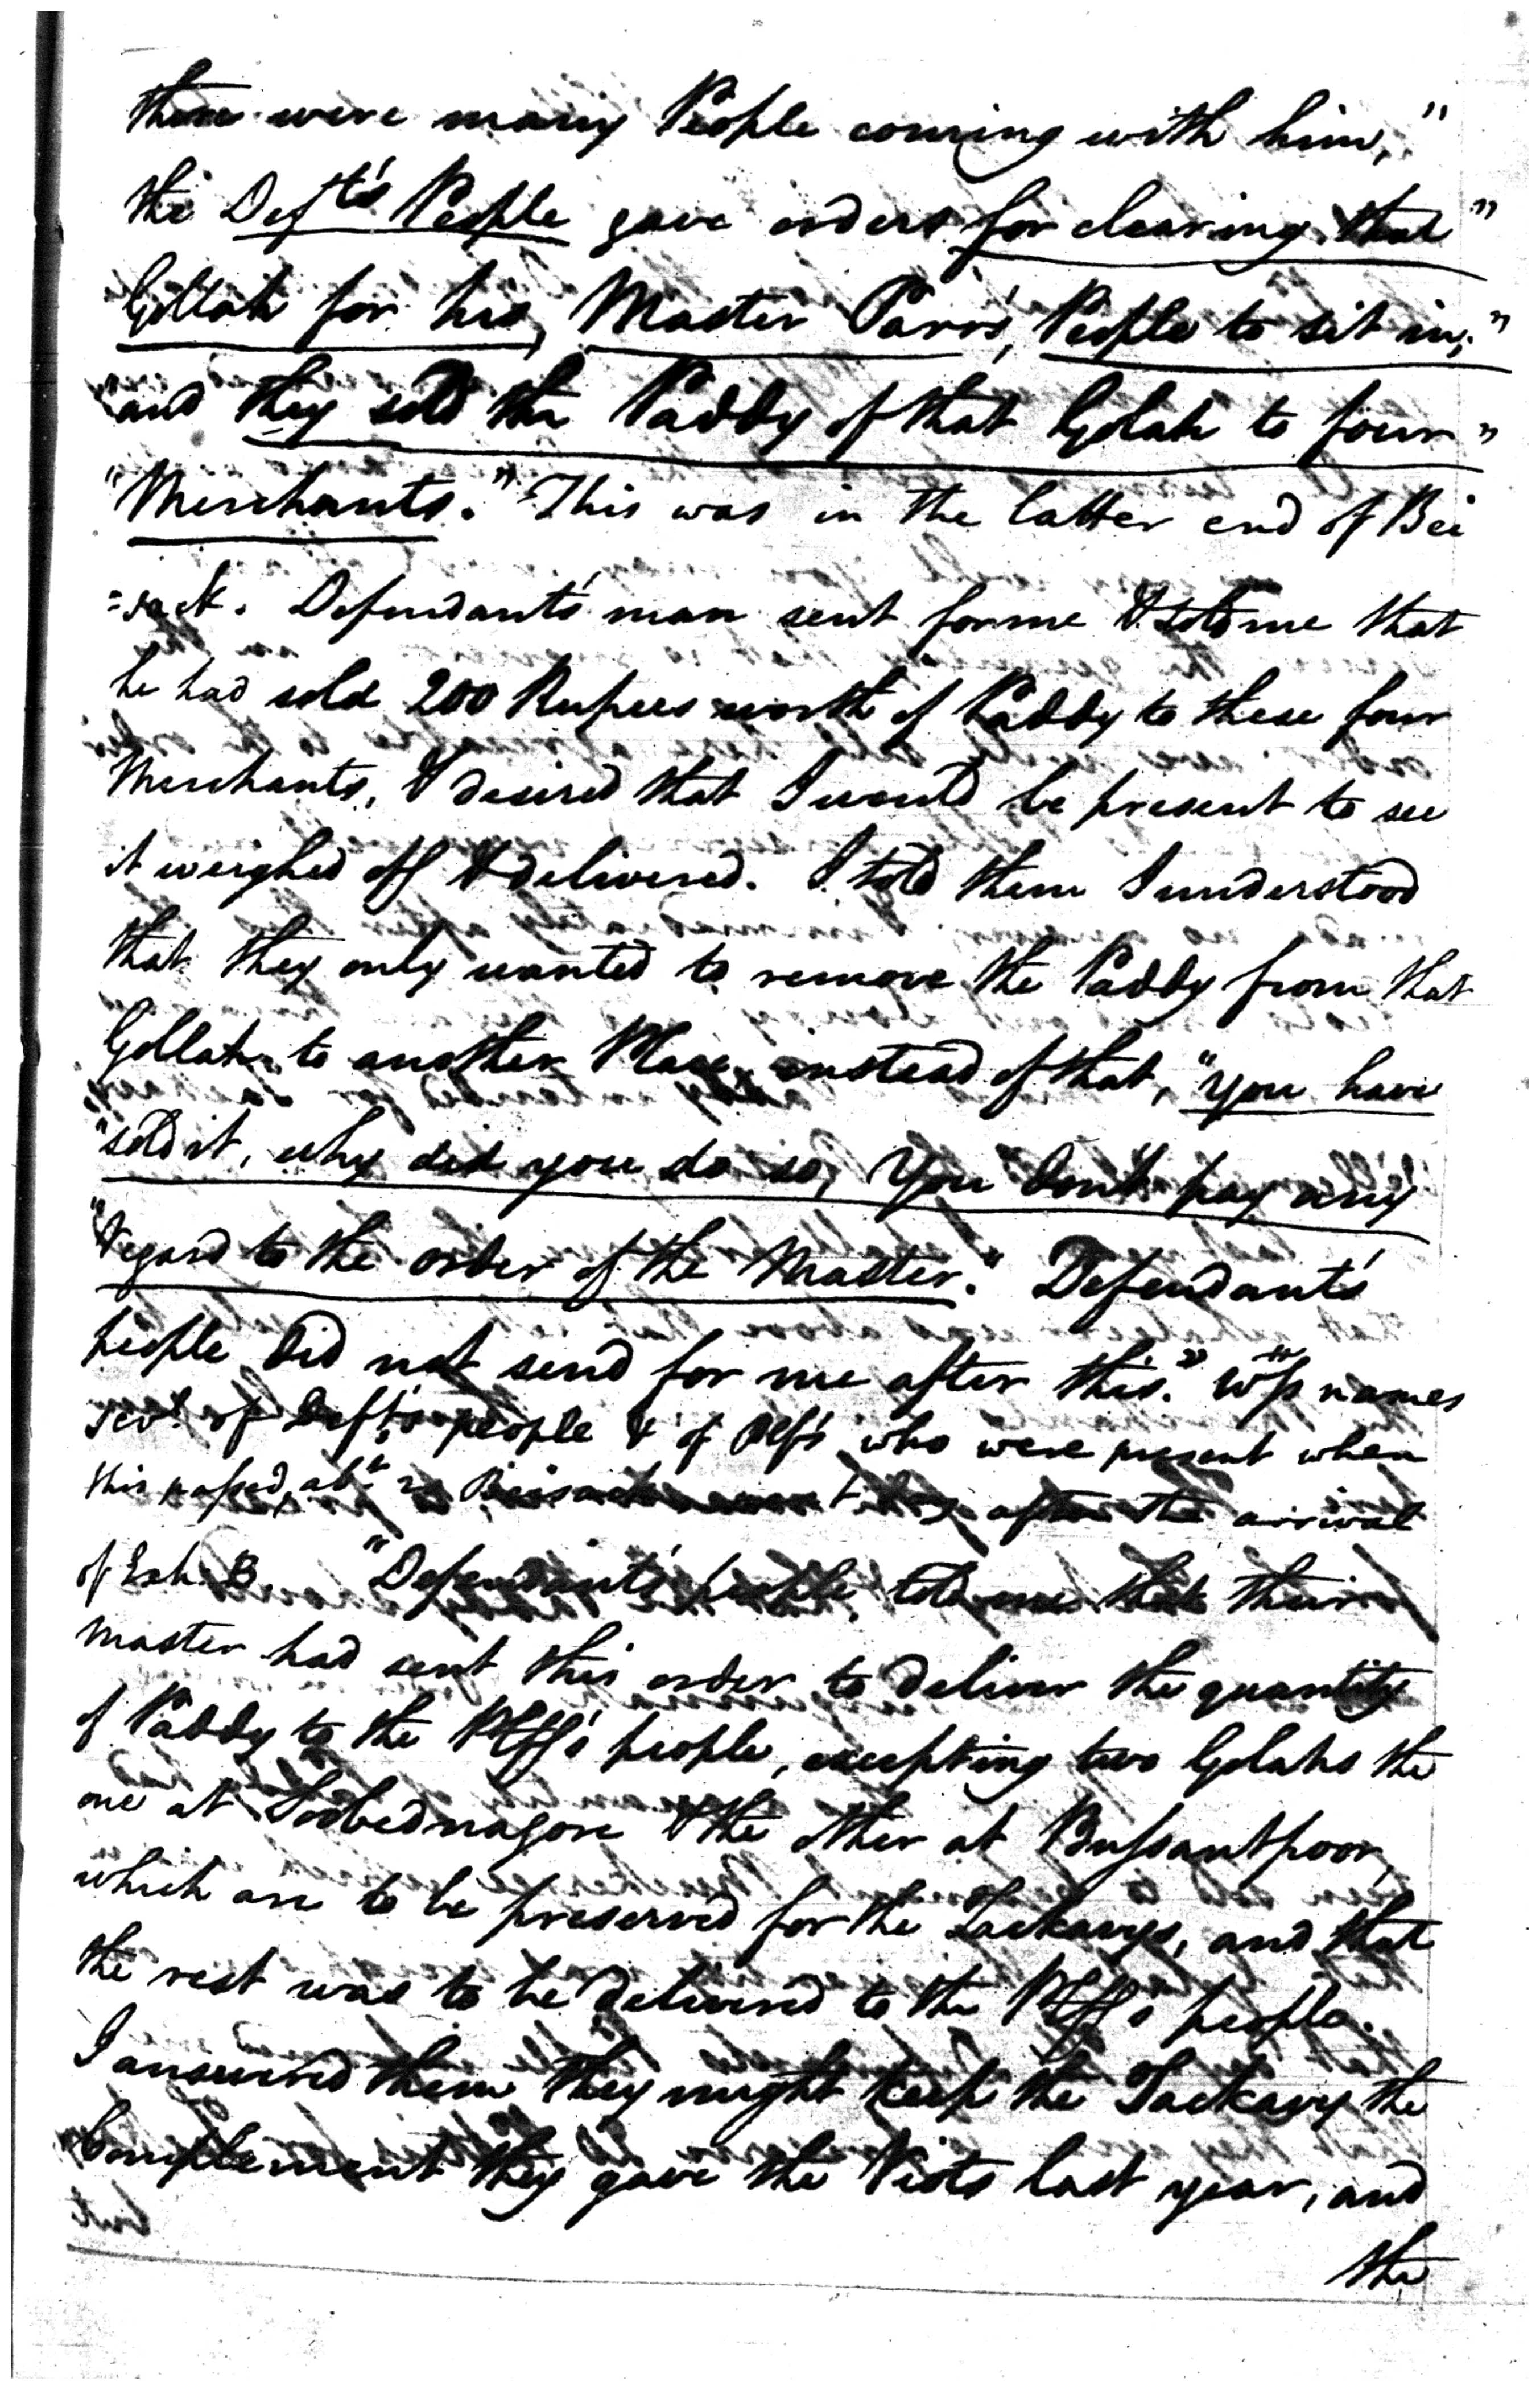 there were many People coming with him,"
the Deft's People gave orders for clearing that"
Gollah for his, Master Parr's, People to sit in,"
and they sold the Paddy of that Golah to four"
"Merchants." This was in the latter end of Bei
=sack. Defendant's man sent for me & told me that
he had sold 200 Rupees worth of Paddy to these four
Merchants, & desired that I would be present to see
it weighed off & delivered. I told them I understood
that they only wanted to remove the Paddy from that
Gollah to another Place, instead of that, "you have
"sold it, why did you do so, You don't pay any
"Regard to the order of the Master." Defendant's
people did not send for me after this." Ws names
sevl of Deft's people & of Plf's who were present when
this passed, abt after the arrival
of Exh. B. "Defendant's people, told me that their
Master had sent this order to deliver the quantity
of Paddy to the Plff's people, excepting two Golahs the
one at Soobednagore & the other at Bussantpoor,
which are to be preserved for the Tackavys, and that
the rest was to be delivered to the Plff's people.
I answered them they might keep the Tackavy the
Complement they gave the Riots last year, and
the